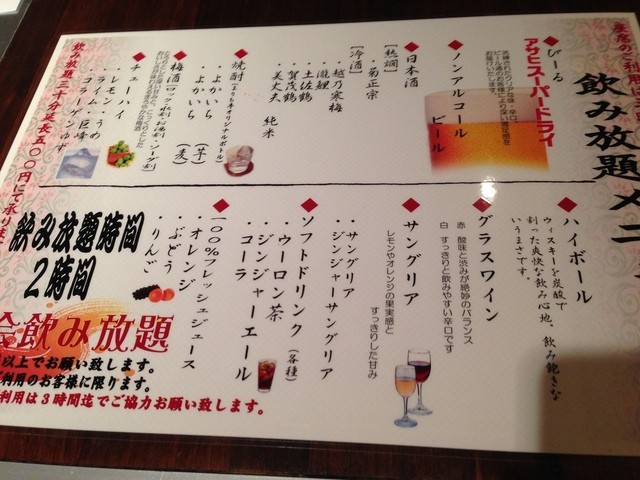 飲み放題メニ
◆びーる
アサヒスーパードライ
洗練されたクリアな味・辛口。
お届けいたします。
◆ノンアルコール
ビール
◆日本酒
【熱燗】
・菊正宗
【冷酒】
・越乃寒梅
・瀧鯉
・土佐鶴
・賀茂鶴
・美丈夫 純米
◆焼酎
・よかいち (芋)
・よかいち (麦)
◆梅酒
◆チューハイ
・レモン
・ライム
・うめ
・巨峰
・コラーゲンゆず
飲み放題三十分延長五〇〇円にて承りま
◆ハイボール
ウィスキーを炭酸で
割った爽快な飲み心地、飲み飽きな
いうまさです。
◆グラスワイン
赤 酸味と渋みが絶妙のバランス
白 すっきりと飲みやすい辛口です
◆サングリア
レモンやオレンジの果実感と
すっきりした甘み
・サングリア
・ジンジャーサングリア
◆ソフトドリンク (各種)
・ウーロン茶
・ジンジャーエール
・コーラ
◆一〇〇%フレッシュジュース
・オレンジ
・ぶどう
・りんご
飲み放題時間
2時間
飲み放題
以上でお願い致します。
利用のお客様に限ります。
利用は3時間迄でご協力お願い致します。